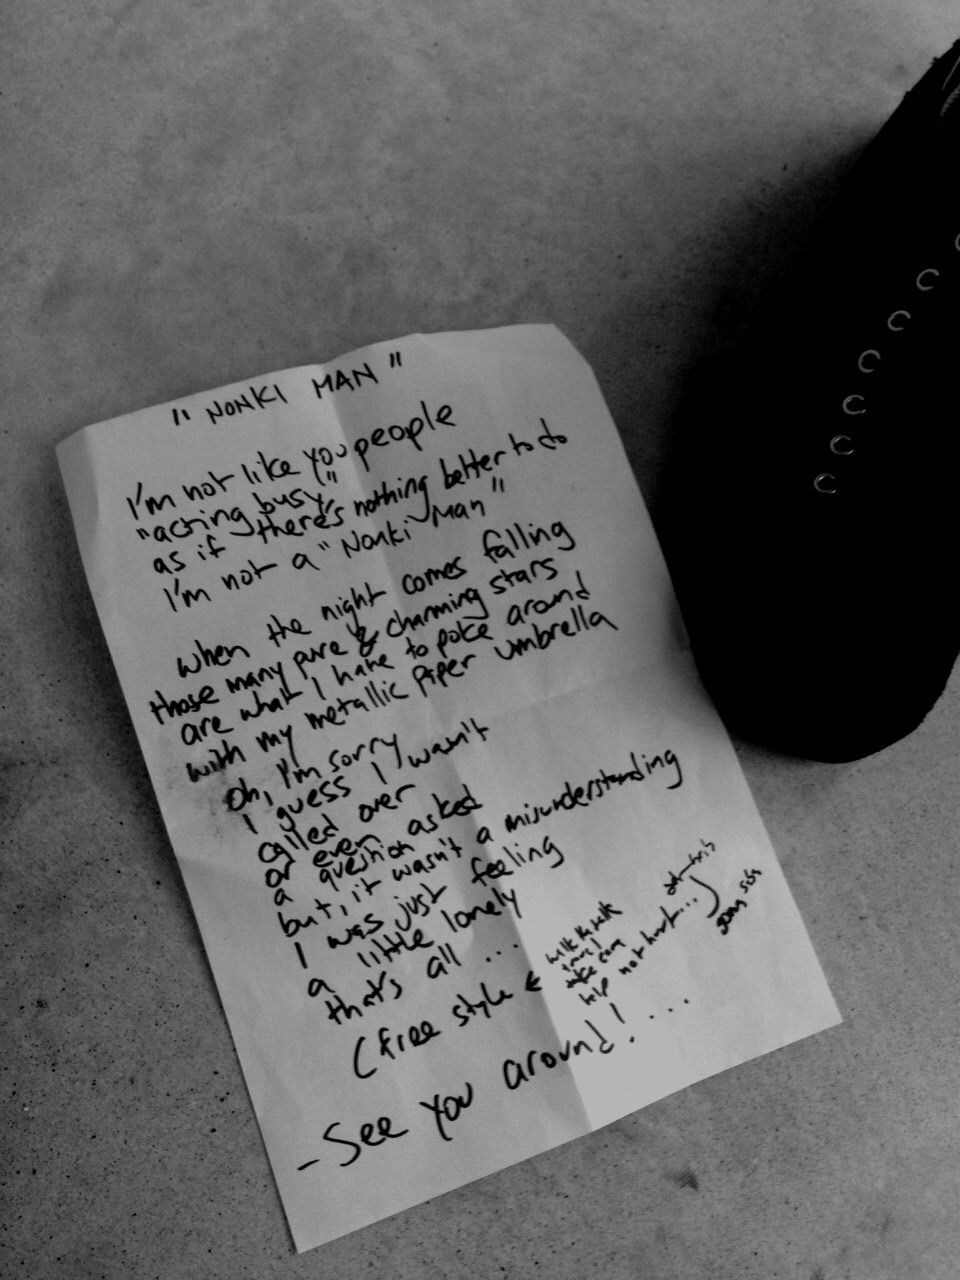 "NONKI MAN"
I'm not like you people
"acting busy"
as if there's nothing better to do
I'm not a "Nonki Man"
when the night comes falling
those many pure & charming stars
are what I have to poke around
with my metallic piper umbrella
oh, I'm sorry
I guess I wasn't
called over
or even asked
a question
but, it wasn't a misunderstanding
I was just feeling
a little lonely
that's all ...
(free style
walk the talk
take care
help not hurt...)
- See you around! ....